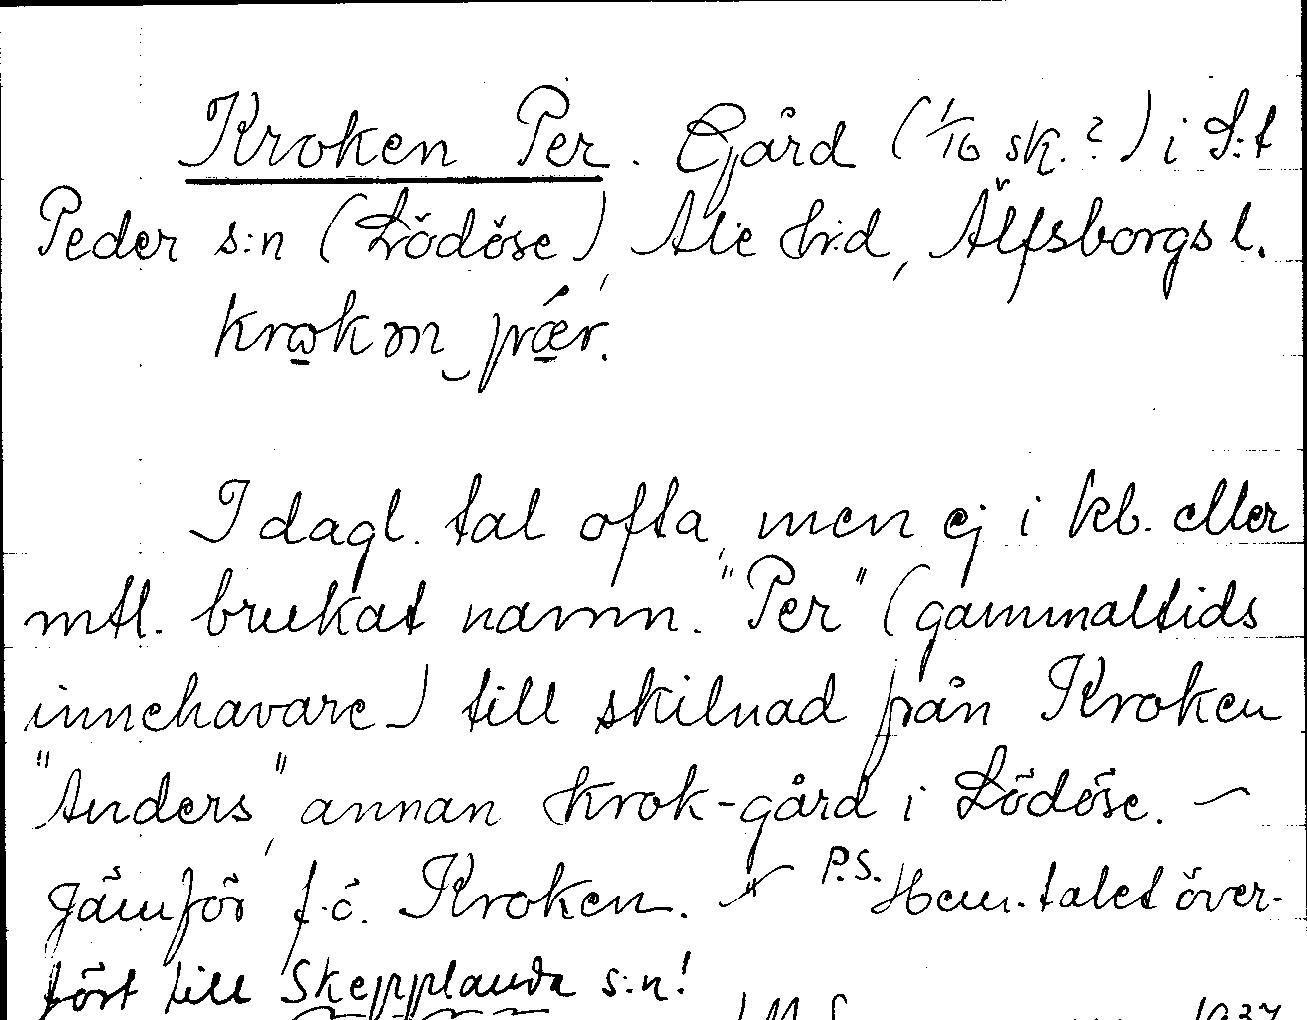 Kroken Per. Gård (1/16 sk.?) i S:t
Peder s:n (Lödöse), Ale hd, Älfsborgs l.
krokən pǽr.
I dagl. tal ofta, men ej i kb. eller
mtl. brukat namn. "Per" (gammaltids
innehavare) till skilnad från Kroken
"Anders", annan Krok-gård i Lödöse. –
Jämför f.ö. Kroken. – P.S. Hem.talet över-
fört till Skepplanda s:n!
1937